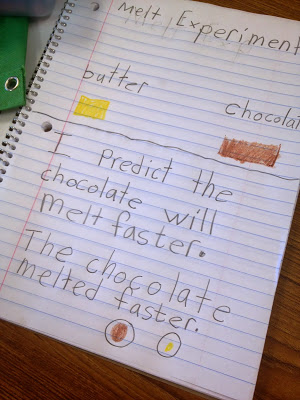 Melt Experiment
butter
Chocolat
I predict the
chocolate will
melt faster.
The chocolate
melted faster.